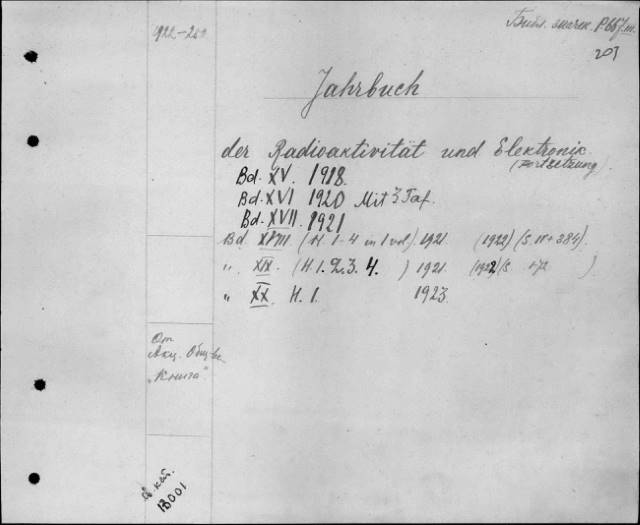 1922-201
Библ. знатк. P667.m.
203
Jahrbuch
der Radioaktivität und Elektronik.
(Fortsetzung)
Bd. XV. 1918.
Bd. XVI 1920 Mit 3 Taf.
Bd. XVII. 1921
Bd. XVIII (H. 1-4 in 1 vol). 1921. (1922) (S. IV+384).
" XIX. (H. 1. 2. 3. 4. ) 1921. (1922) (S. +72 )
" XX. H. 1. 1923.
От
Акц. Общ-ва
„Книга"
кат.
18001